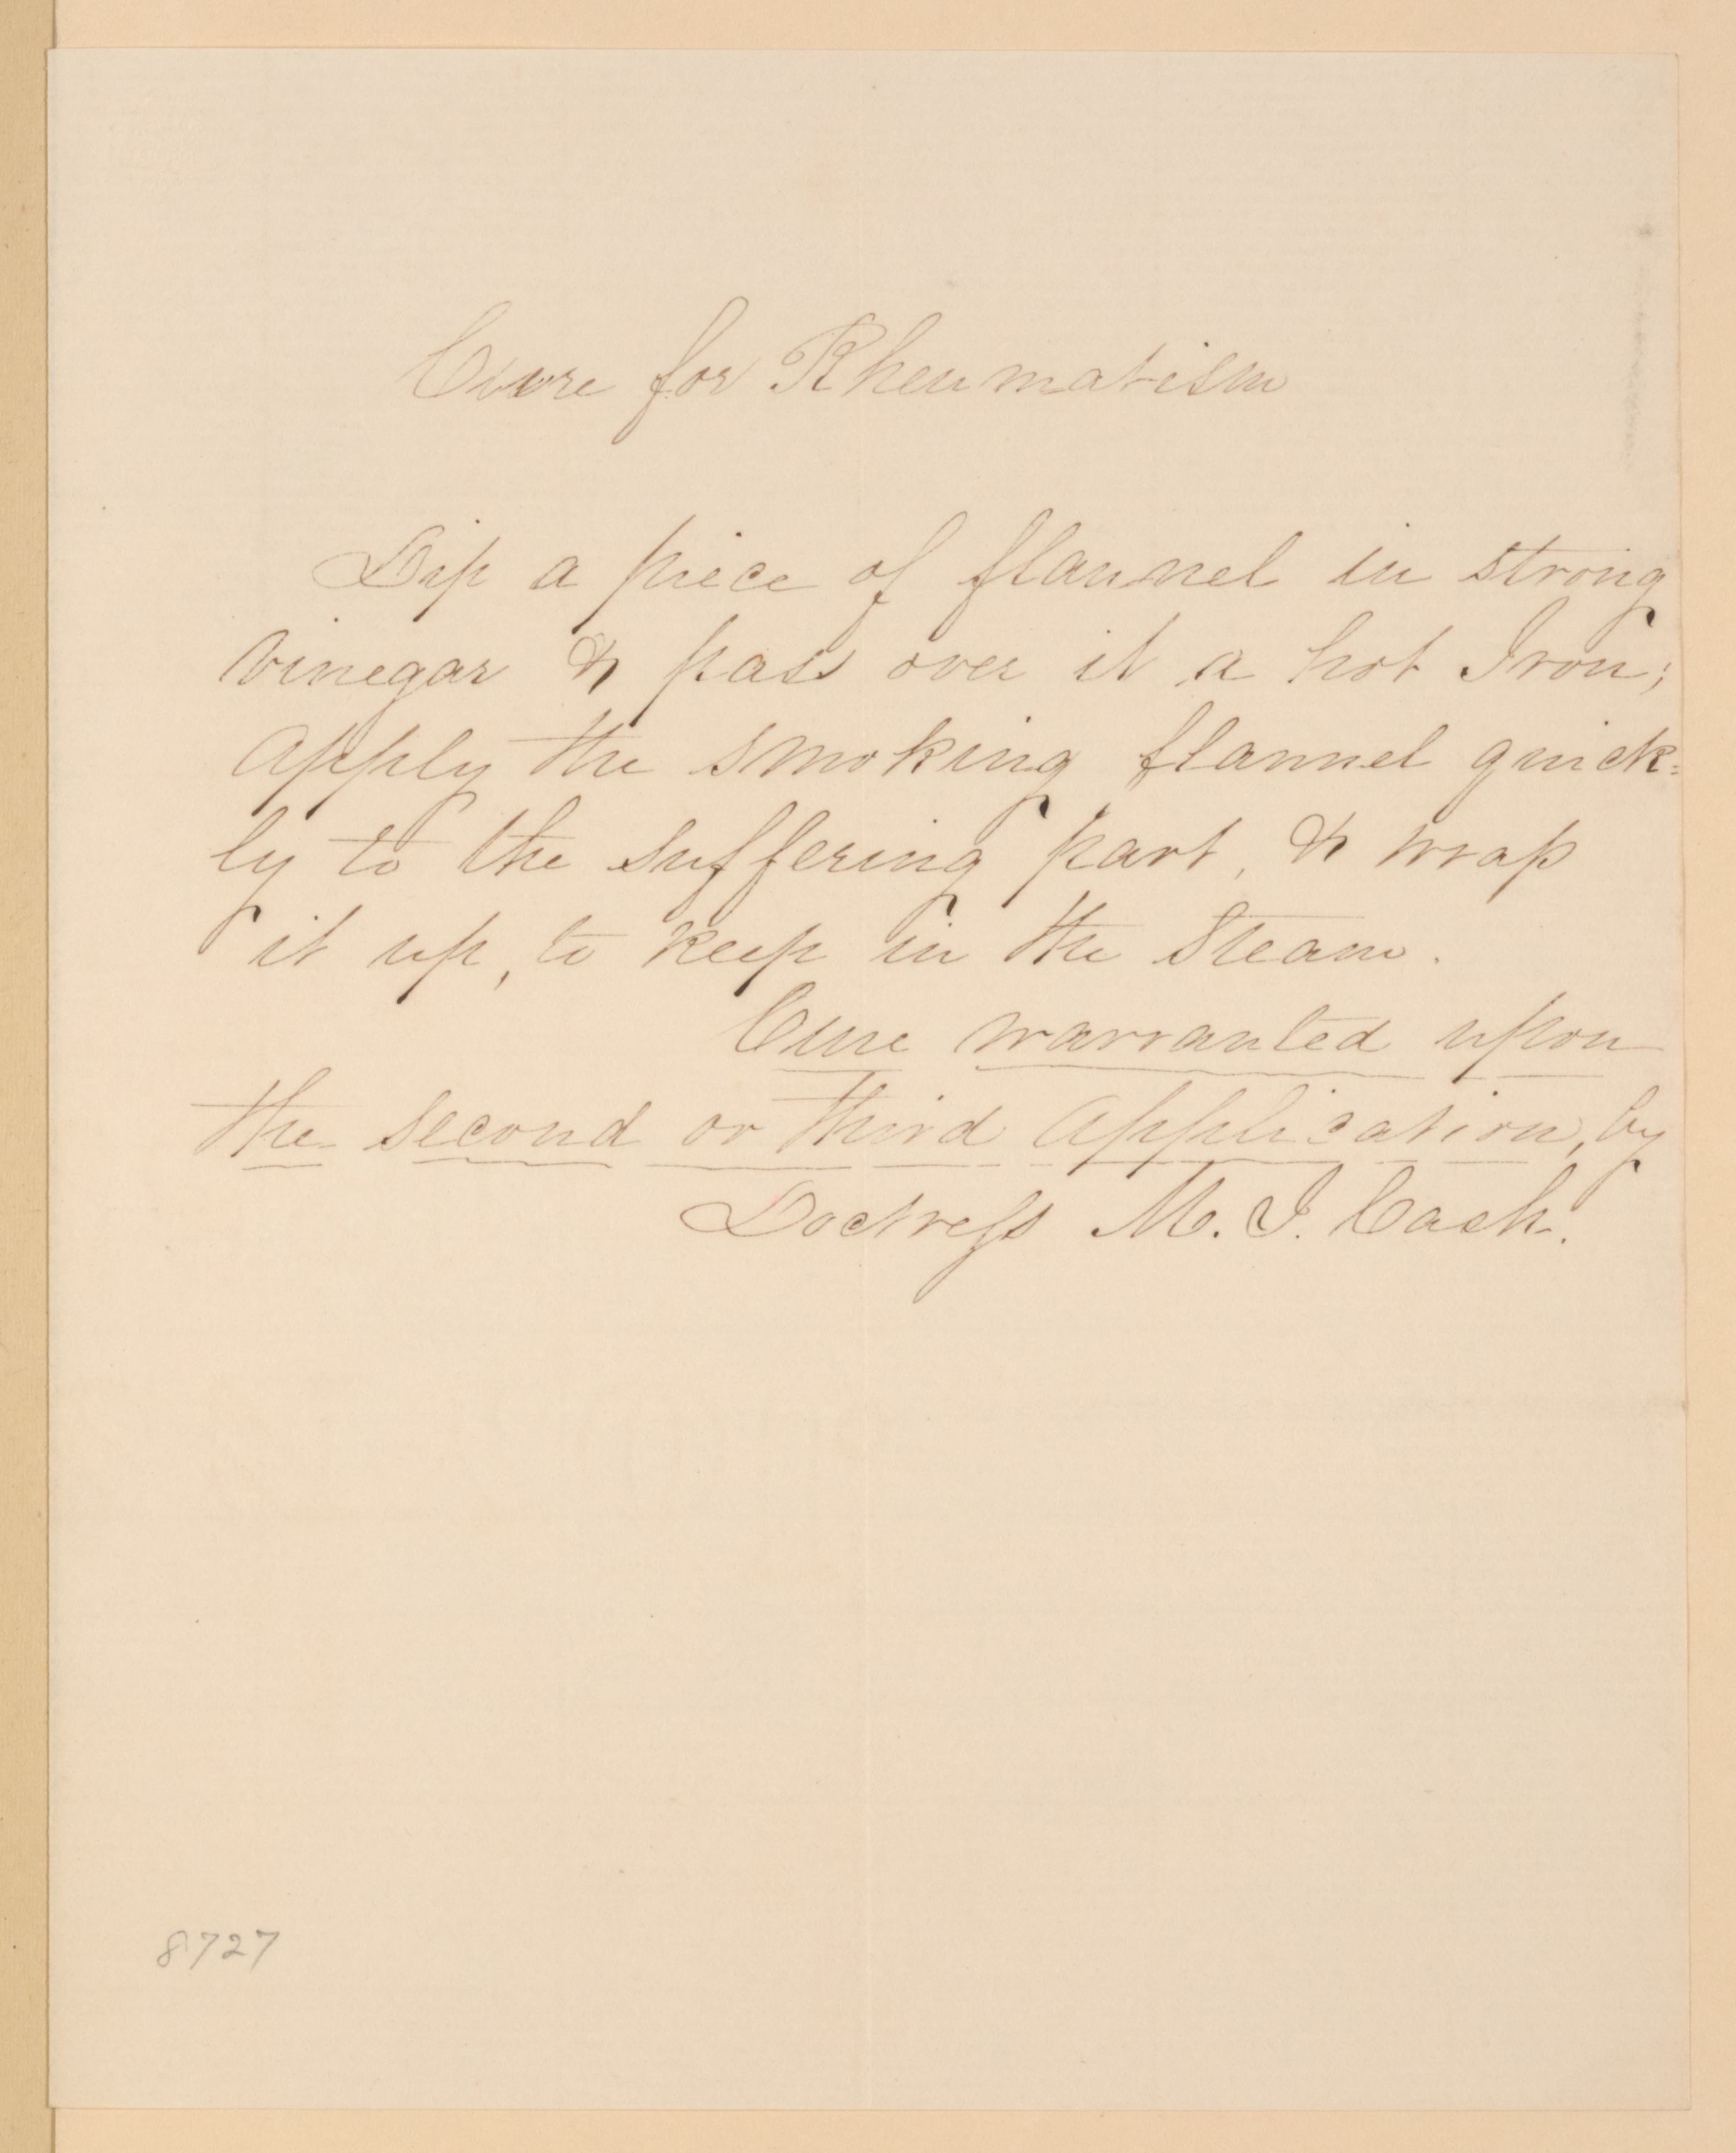 Cure for Rheumatism
Dip a piece of flannel in strong
vinegar & pass over it a hot Iron;
apply the smoking flannel quick=
ly to the suffering part, & wrap
it up, to keep in the Steam.
Cure warranted upon
the second or third application, by
Doctress M. J. Cash.
8727